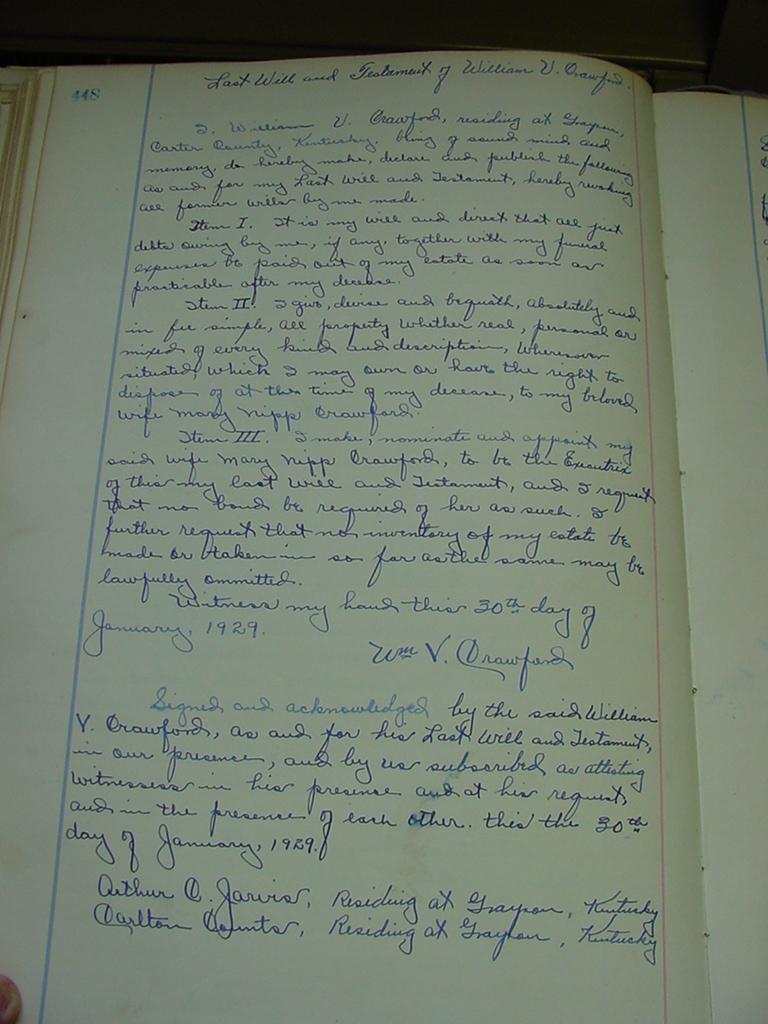 448
Last Will and Testament of William V. Crawford.
I, William V. Crawford, residing at Grayson,
Carter County, Kentucky, being of sound mind and
memory, do hereby make, declare and publish the following
as and for my Last Will and Testament, hereby revoking
all former wills by me made.
Item I. It is my will and direct that all just
debts owing by me, if any, together with my funeral
expenses be paid out of my estate as soon as
practicable after my decease.
Item II. I give, devise and bequath, absolutely and
in fee simple, all property whether real, personal or
mixed of every kind and description, wheresoever
situated, which I may own or have the right to
dispose of at the time of my decease, to my beloved
wife Mary Nipp Crawford.
Item III. I make, nominate and appoint my
said wife Mary Nipp Crawford, to be the Executrix
of this my last Will and Testament, and I request
that no bond be required of her as such. I
further request that no inventory of my estate be
made or taken in so far as the same may be
lawfully ommitted.
Witness my hand this 30th day of
January, 1929.
Wm V. Crawford
Signed and acknowledged by the said William
V. Crawford, as and for his Last Will and Testament,
in our presence, and by us subscribed as attesting
witnesses in his presence and at his request,
and in the presence of each other. this the 30th
day of January, 1929.
Arthur C. Jarvis, Residing at Grayson, Kentucky
Carlton Counts, Residing at Grayson, Kentucky